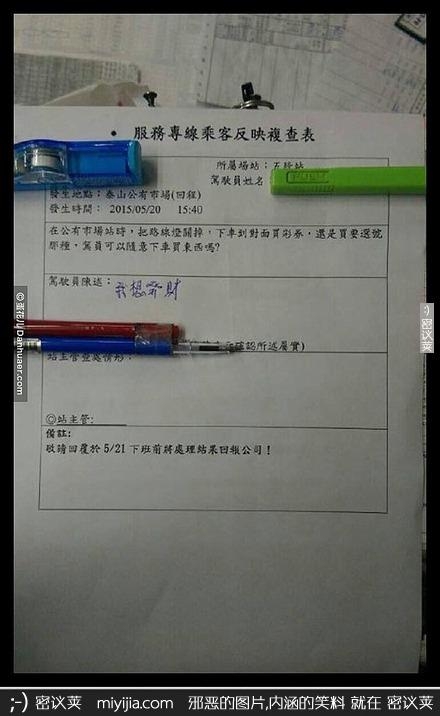 • 服務專線乘客反映複查表
所屬場站：五股站
駕駛員姓名
發生地點：泰山公有市場(回程)
發生時間： 2015/05/20 15:40
在公有市場站時，把路線燈關掉，下車到對面買彩券，還是買要選號
那種，駕員可以隨意下車買東西嗎?
駕駛員陳述：我想發財
確認所述屬實)
站主管查處情形：
◎站主管:
備註:
敬請回覆於 5/21 下班前將處理結果回報公司！
©蛋花儿Danhuaer.com
密议莱
;-) 密议莱 miyijia.com 邪恶的图片,内涵的笑料 就在 密议莱